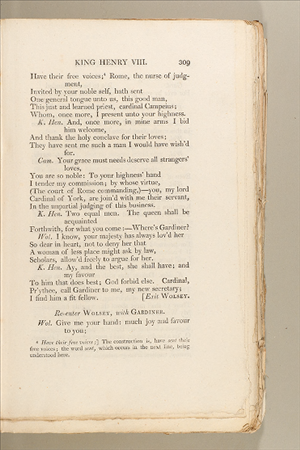 KING HENRY VIII. 309
Have their free voices;⁴ Rome, the nurse of judg-
ment,
Invited by your noble self, hath sent
One general tongue unto us, this good man,
This just and learned priest, cardinal Campeius;
Whom, once more, I present unto your highness.
K. Hen. And, once more, in mine arms I bid
him welcome,
And thank the holy conclave for their loves;
They have sent me such a man I would have wish'd
for.
Cam. Your grace must needs deserve all strangers'
loves,
You are so noble: To your highness' hand
I tender my commission; by whose virtue,
(The court of Rome commanding,)—you, my lord
Cardinal of York, are join'd with me their servant,
In the unpartial judging of this business.
K. Hen. Two equal men. The queen shall be
acquainted
Forthwith, for what you come:—Where's Gardiner?
Wol. I know, your majesty has always lov'd her
So dear in heart, not to deny her that
A woman of less place might ask by law,
Scholars, allow'd freely to argue for her.
K. Hen. Ay, and the best, she shall have; and
my favour
To him that does best; God forbid else. Cardinal,
Pr'ythee, call Gardiner to me, my new secretary;
I find him a fit fellow. [Exit WOLSEY.
Re-enter WOLSEY, with GARDINER.
Wol. Give me your hand: much joy and favour
to you;
⁴ Have their free voices;] The construction is, have sent their
free voices; the word sent, which occurs in the next line, being
understood here.